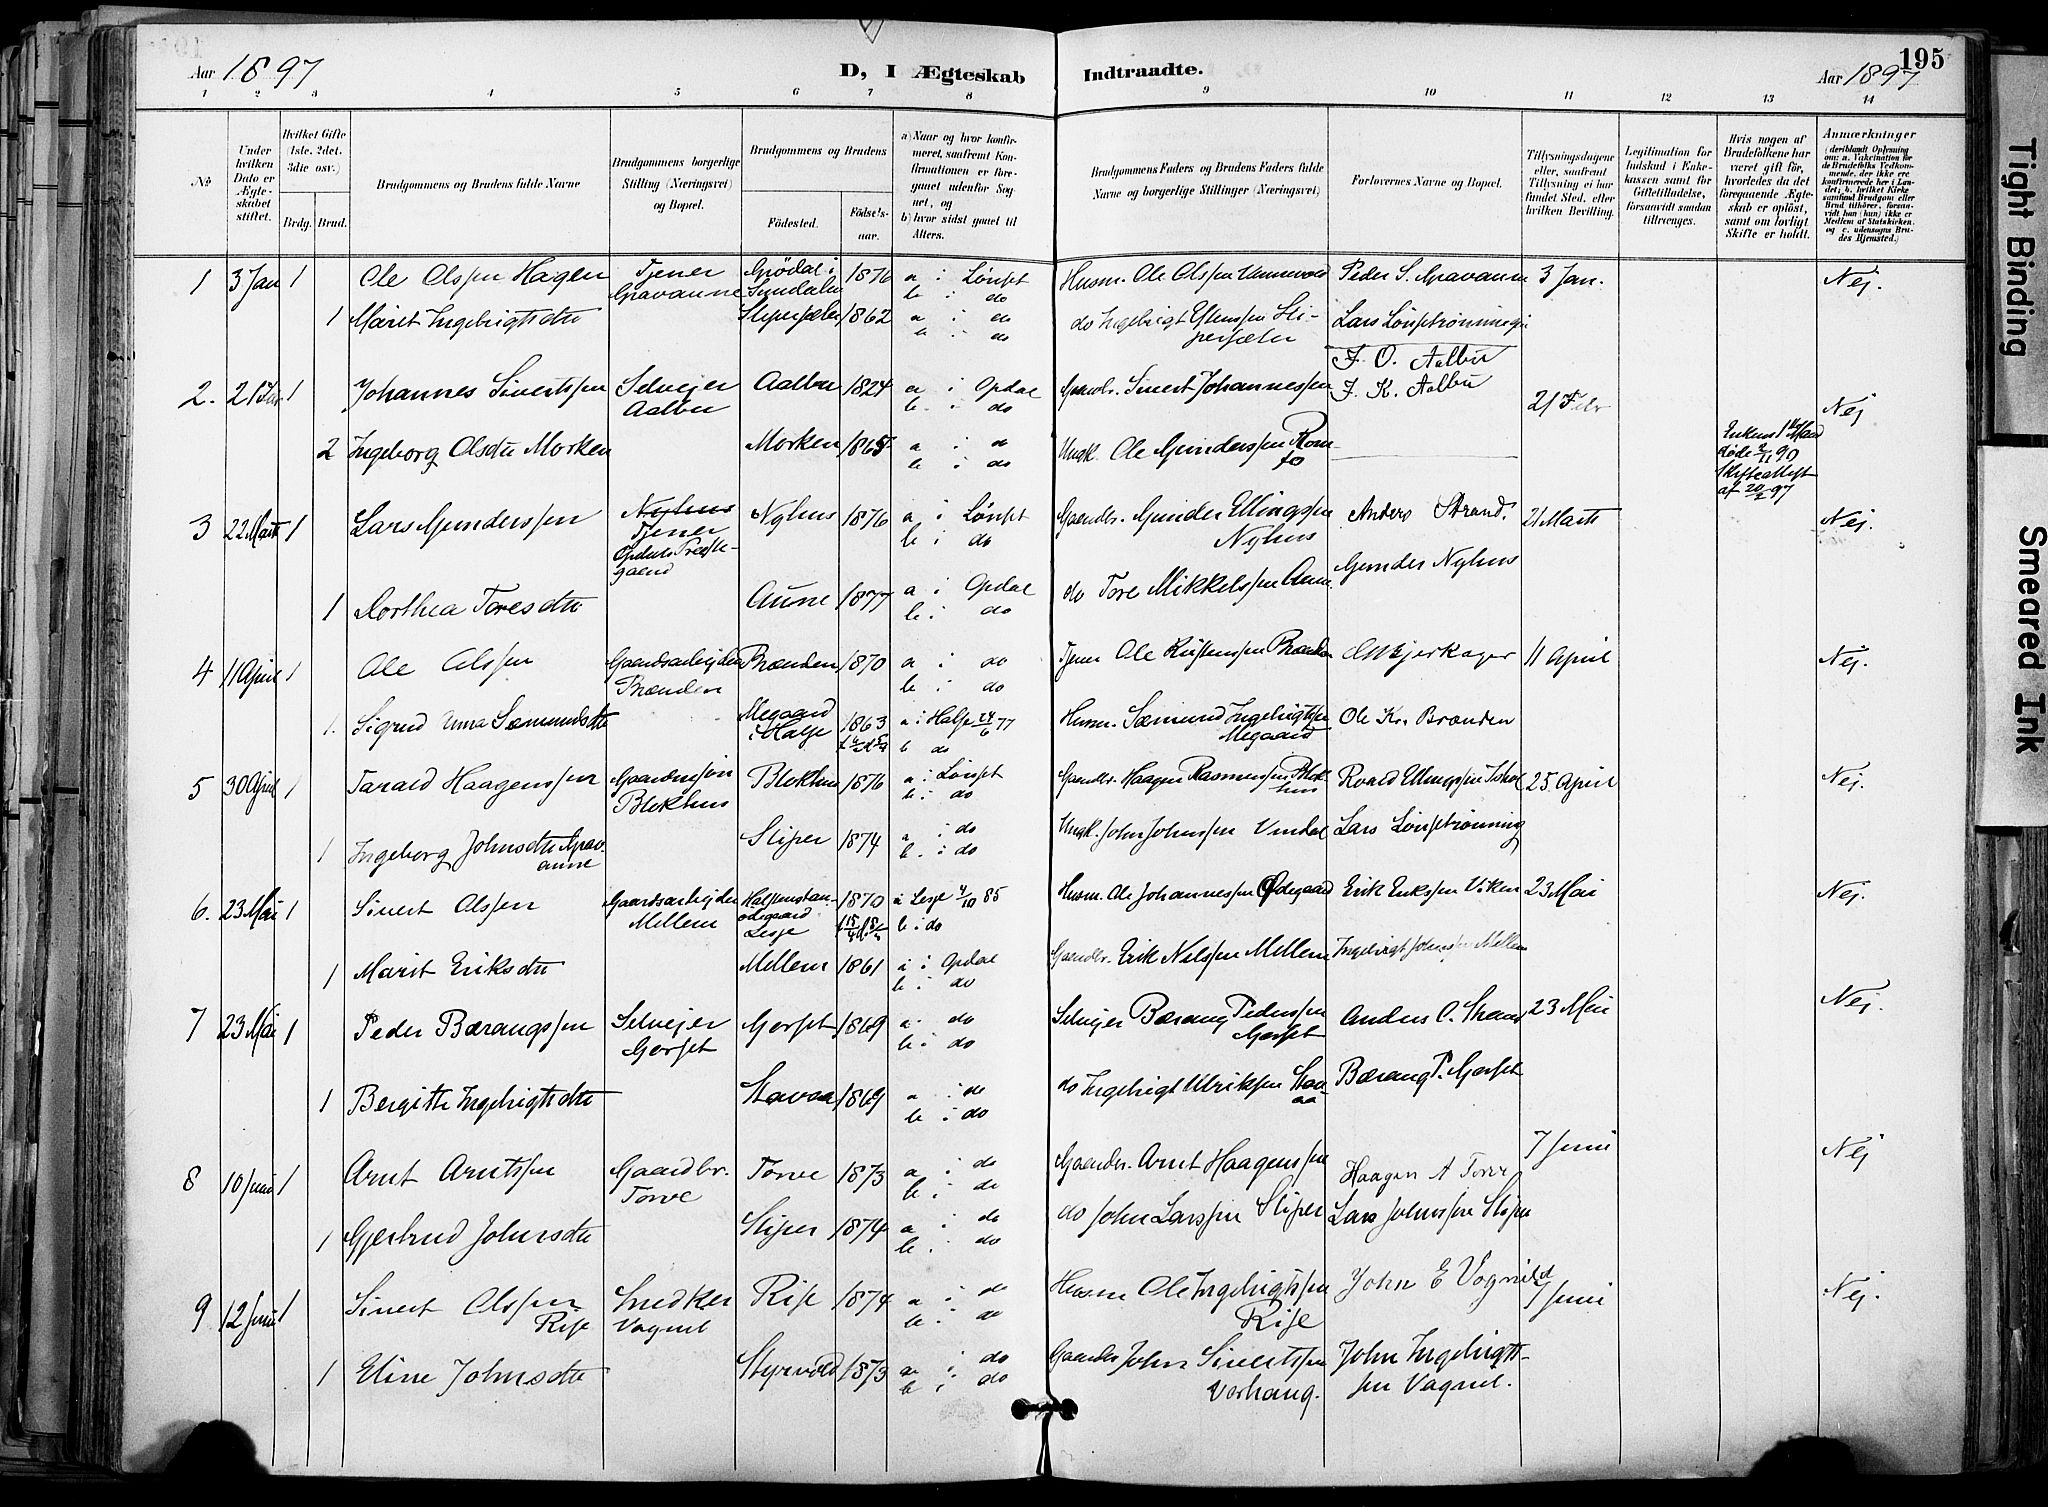 195
Aar 1897 D, I Ægteskab Indtraadte. Aar 1897
1 2 3 4 5 6 7 8 9 10 11 12 13 14
No
Under hvilken Dato er Ægteskabet stiftet.
Hvilket Gifte (1ste, 2det, 3die osv.)
Brdg. Brud.
Brudgommens og Brudens fulde Navne
Brudgommens borgerlige Stilling (Næringsvei) og Bopæl.
Brudgommens og Brudens
Fødested. Fødselsaar.
a) Naar og hvor konfirmeret, saafremt Konfirmationen er foregaaet udenfor Sognet, og
b) hvor sidst gaaet til Alters.
Brudgommens Faders og Brudens Faders fulde Navne og borgerlige Stillinger (Næringsvei)
Forlovernes Navne og Bopæl.
Tillysningsdagene eller, saafremt Tillysning ei har fundet Sted, efter hvilken Bevilling.
Legitimation for Indskud i Enkekassen samt for Giftetilladelse, forsaavidt saadan tiltrænges.
Hvis nogen af Brudefolkene har været gift før, hvorledes da det foregaaende Ægteskab er opløst, samt om lovligt Skifte er holdt.
Anmærkninger
1 3 Jan 1 Ole Olssen Hagen Tjener Gravaune Grødal i Sundalen 1876 a i Lønset b do Husm. Ole Olssen Peder S. Gravaune 3 Jan. Nej.
1 Marit Ingebrigtsdtr Stipersæter 1862 a i do b i do do Ingebrigt Estenssen Stipersæter Lars Lønsetrønningen
2. 21 1 Johannes Sivertssen Selvejer Aalbu Aalbu 1824 a i Opdal b. i do Gaardbr. Sivert Johannessen J. O. Aalbu J. K. Aalbu 21 Febr Nej
2 Ingeborg Olsdtr Morken Morken 1865 a i do b i do Ungk. Ole Gunderssen Enkens 1ste Mand døde 2/11 90 Skifteattest af 20/2 97
3 22 Marts 1 Lars Gunderssen Nyhus Tjener Opdals Præstegaard Nyhus 1876 a i Lønset b i do Gaardbr. Gunder Ellingssen Nyhus Anders Strand. 21 Marts Nej.
1 Dorthea Toresdtr Aune 1877 a i Opdal b i do do Tore Mikkelssen Aune Gunder Nyhus
4 11 April 1 Ole Olssen Gaardsarbejder Brænden Brænden 1870 a i do b i do Tjener Ole Kristenssen Brænden O. Bjerkager 11 April Nej.
1. Sigrid Sæmundsdtr 1863 a i 24/6 77 b do Husm. Sæmund Ingebrigtssen Ole Kr. Brænden
5 30 April 1 Tarald Haagenssen Gaardmsøn Blekhus Blekhus 1876 a i Lønset b i do Gaardbr. Haagen Rasmussen Blekhus Roald Ellingssen 25 April Nej.
1 Ingeborg Johnsdtr Gravaune Stiper 1874 a i do b. i do Ungk. John Johnssen Vindal Lars Lønsetrønning
6. 23 Mai 1 Sivert Olssen Gaardsarbejder Mellem Lesje 1870 a Lesje 4/10 85 b i do Husm. Ole Johannessen Ødegaard Erik Erikssen Viken 23 Mai Nej.
1 Marit Eriksdtr Mellem 1861 a i Opdal b i do Gaardbr. Erik Nilssen Mellem Ingebrigt Johnssen Mellem
7 23 Mai 1 Peder Bærangssen Selvejer Gorset Gorset 1869 a i do b i do Selvejer Bærang Pederssen Gorset Anders O. Strand 23 Mai Nej.
1 Bergitte Ingebrigtsdtr Stavaa 1869 a i do b i do do Ingebrigt Ulrikssen Stavaa Bærang P. Gorset
8 10 Juni 1 Arnt Arntssen Gaardbr. Torve Torve 1873 a i do b i do Gaardbr. Arnt Haagenssen Haagen A Torve 7 Juni Nej
1 Gjertrud Johnsdtr Stiper 1874 a i do b i do do John Larssen Stiper Lars Johnssen Stiper
9 12 Juni 1 Sivert Olssen Rise Snedker Vognil Rise 1874 a i do b i do Husm Ole Ingebrigtssen Rise John E Vognild 7 Juni Nej.
1 Eline Johnsdtr Styrvold 1873 a i do b i do Gaardbr John Sivertssen Vorhaug. John Ingebrigtssen Vognil.
Tight Binding
Smeared Ink